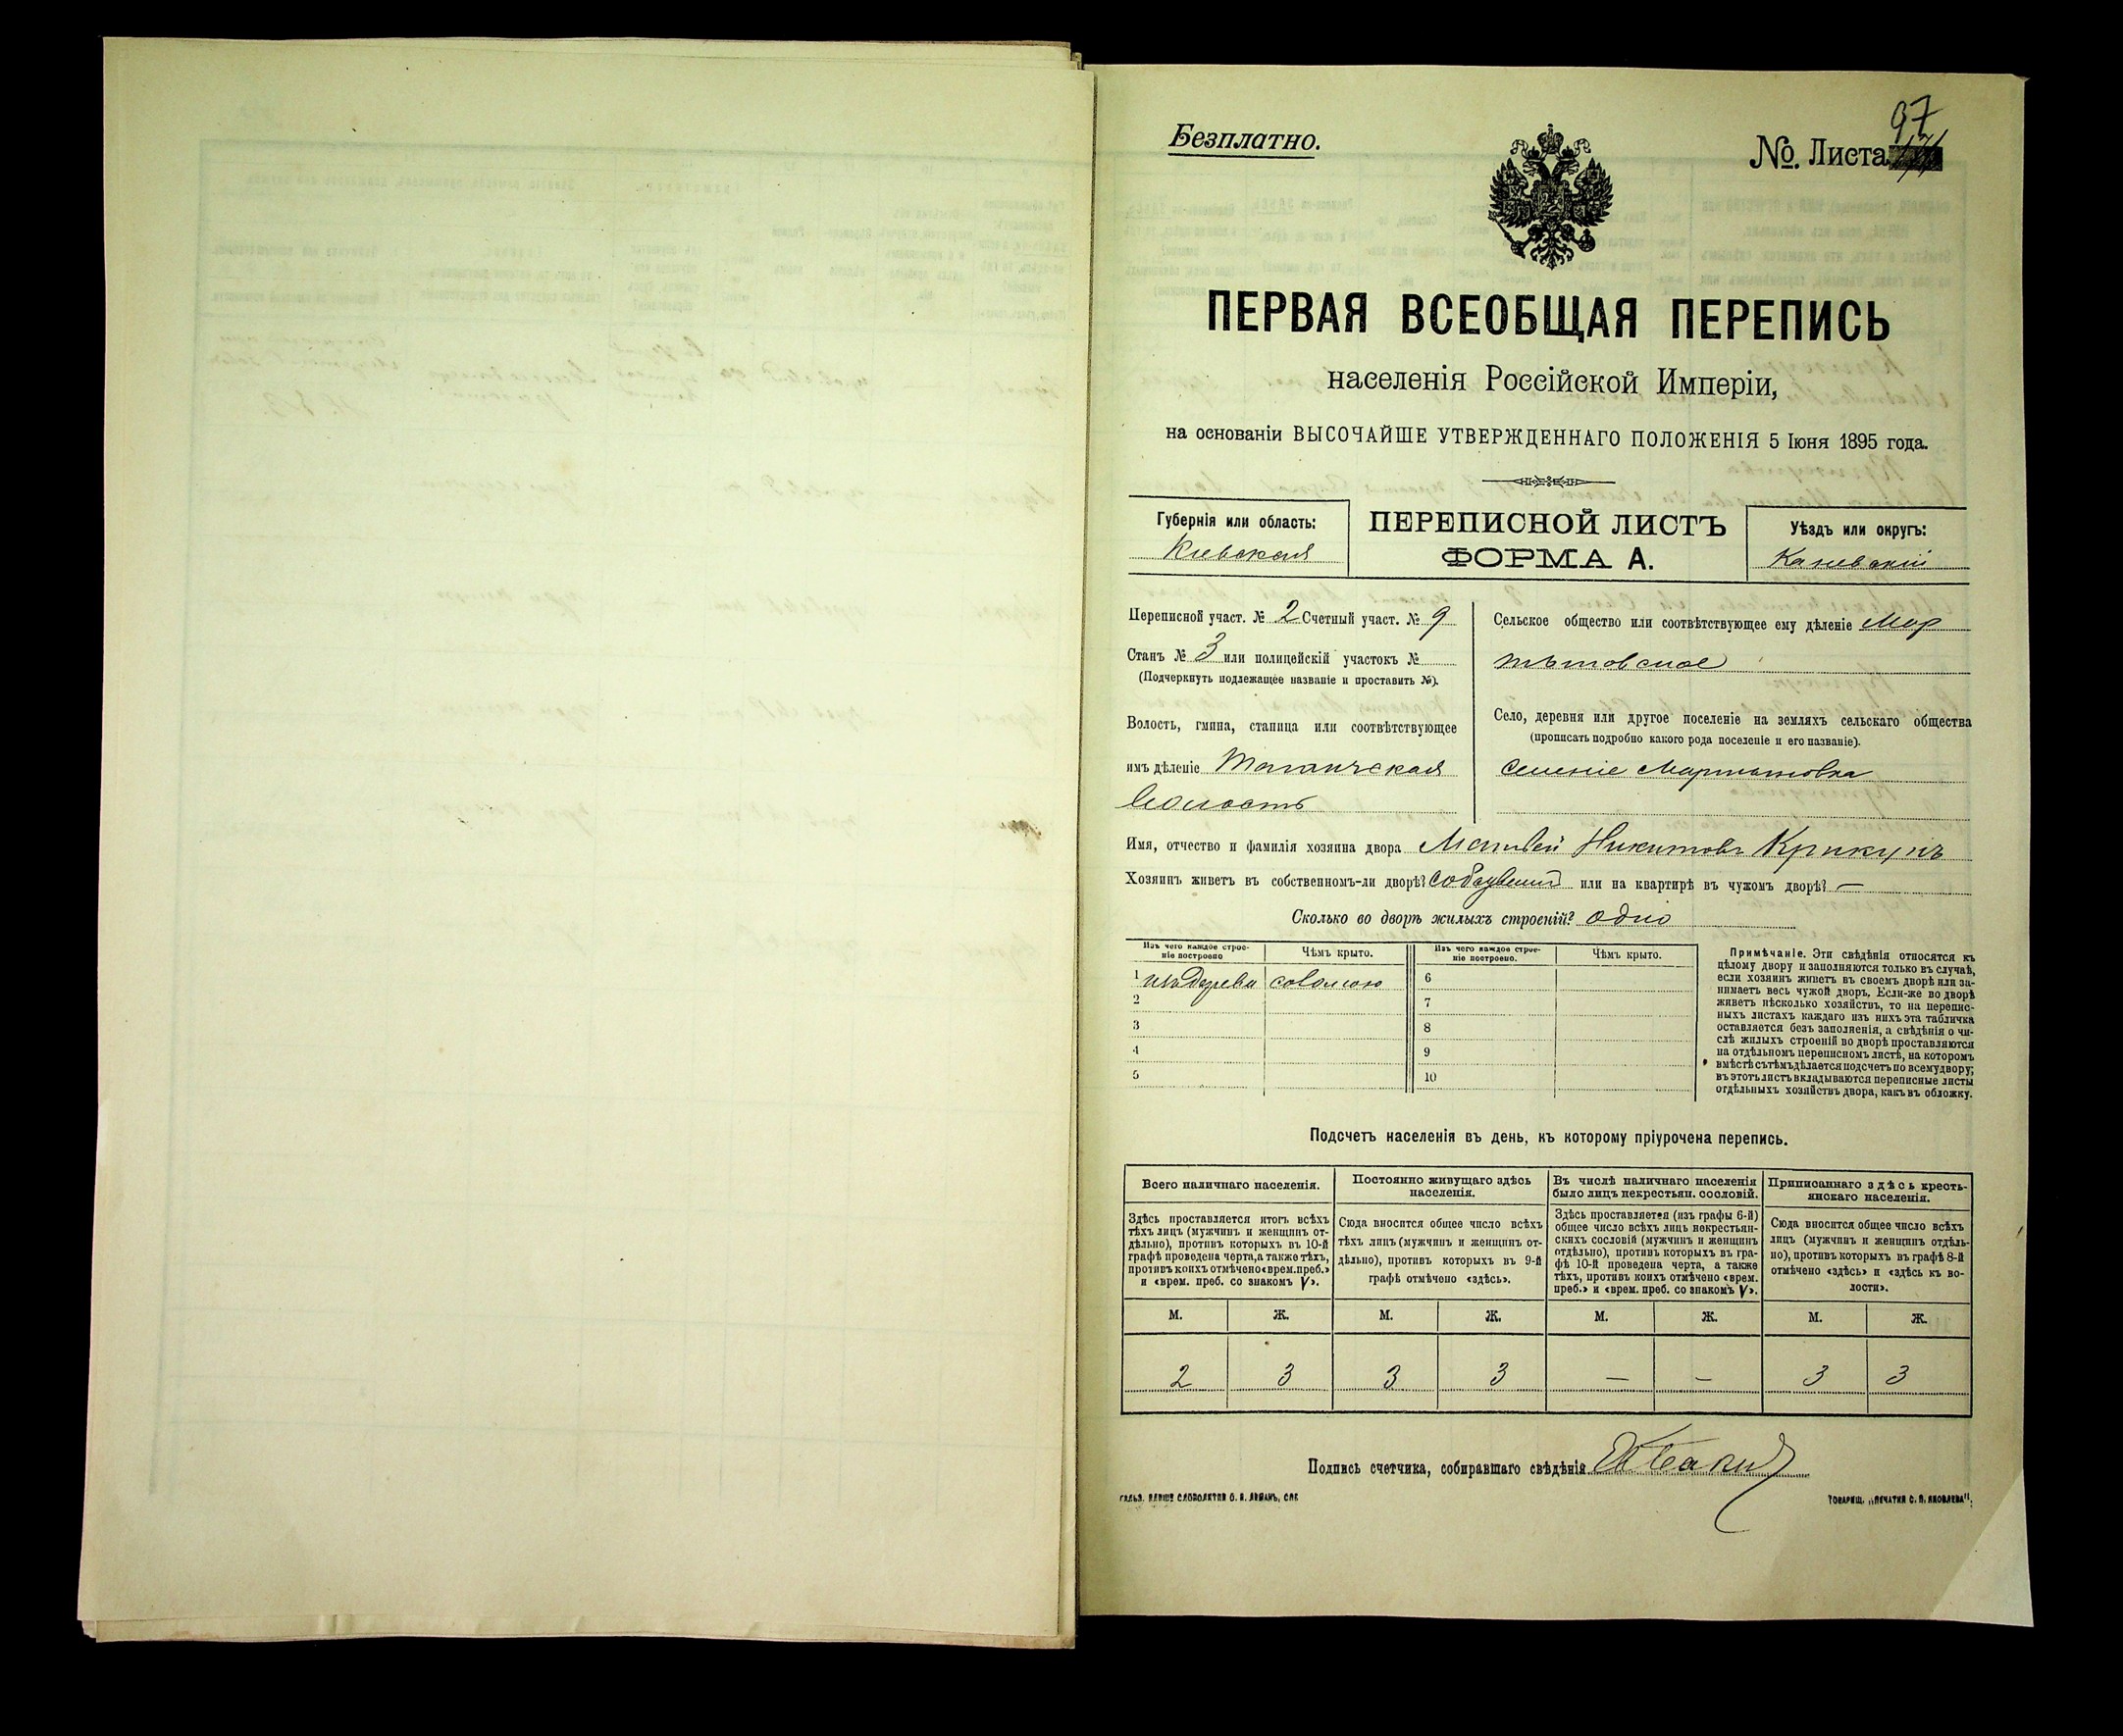 Безплатно.
97
№. Листа
ПЕРВАЯ ВСЕОБЩАЯ ПЕРЕПИСЬ
населенія Россійской Имперіи,
на основаніи ВЫСОЧАЙШЕ УТВЕРЖДЕННАГО ПОЛОЖЕНІЯ 5 Іюня 1895 года.
Губернія или область:
Кіевская
ПЕРЕПИСНОЙ ЛИСТЪ
ФОРМА А.
Уѣздъ или округъ:
Каневскій
Переписной участ. № 2 Счетный участ. № 9
Станъ № 3 или полицейскій участокъ №
(Подчеркнуть подлежащее названіе и проставить №).
Волость, гмина, станица или соотвѣтствующее
имъ дѣленіе Таганчская
Волость
Сельское общество или соотвѣтствующее ему дѣленіе Мар
тыновское
Село, деревня или другое поселеніе на земляхъ сельскаго общества
(прописать подробно какого рода поселеніе и его названіе).
Селеніе Мартыновка
Имя, отчество и фамилія хозяина двора Матвей Никитовъ Крикунъ
Хозяинъ живетъ въ собственномъ-ли дворѣ? или на квартирѣ въ чужомъ дворѣ? —
Сколько во дворѣ жилыхъ строеній? одно
Изъ чего каждое строе-
ніе построено
Чѣмъ крыто.
Изъ чего каждое строе-
ніе построено.
Чѣмъ крыто.
1 изъ дерева соломою
2
3
4
5
6
7
8
9
10
Примѣчаніе. Эти свѣдѣнія относятся къ
цѣлому двору и заполняются только въ случаѣ,
если хозяинъ живетъ въ своемъ дворѣ или за-
нимаетъ весь чужой дворъ. Если-же во дворѣ
живетъ нѣсколько хозяйствъ, то на перепис-
ныхъ листахъ каждаго изъ нихъ эта табличка
оставляется безъ заполненія, а свѣдѣнія о чи-
слѣ жилыхъ строеній во дворѣ проставляются
на отдѣльномъ переписномъ листѣ, на которомъ
вмѣстѣ съ тѣмъ дѣлается подсчетъ по всему двору;
въ этотъ листъ вкладываются переписные листы
отдѣльныхъ хозяйствъ двора, какъ въ обложку.
Подсчетъ населенія въ день, къ которому пріурочена перепись.
Всего наличнаго населенія.
Здѣсь проставляется итогъ всѣхъ
тѣхъ лицъ (мужчинъ и женщинъ от-
дѣльно), противъ которыхъ въ 10-й
графѣ проведена черта, а также тѣхъ,
противъ коихъ отмѣчено «врем. преб.»
и «врем. преб. со знакомъ V».
Постоянно живущаго здѣсь
населенія.
Сюда вносится общее число всѣхъ
тѣхъ лицъ (мужчинъ и женщинъ от-
дѣльно), противъ которыхъ въ 9-й
графѣ отмѣчено «здѣсь».
Въ числѣ наличнаго населенія
было лицъ некрестьян. сословій.
Здѣсь проставляется (изъ графы 6-й)
общее число всѣхъ лицъ некрестьян-
скихъ сословій (мужчинъ и женщинъ
отдѣльно), противъ которыхъ въ гра-
фѣ 10-й проведена черта, а также
тѣхъ, противъ коихъ отмѣчено «врем.
преб.» и «врем. преб. со знакомъ V».
Приписаннаго здѣсь кресть-
янскаго населенія.
Сюда вносится общее число всѣхъ
лицъ (мужчинъ и женщинъ отдѣль-
но), противъ которыхъ въ графѣ 8-й
отмѣчено «здѣсь» и «здѣсь къ во-
лости».
М. Ж. М. Ж. М. Ж. М. Ж.
2 3 3 3 — — 3 3
Подпись счетчика, собиравшаго свѣдѣнія
Товарищ. „Печатня С. П. Яковлева“.